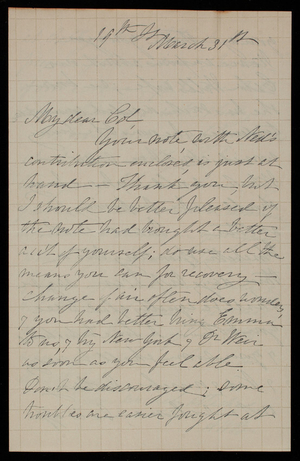 19th St March 31st
My dear Col
Your note with Ned's
contribution enclosed is just at
hand — Thank you, but
I should be better pleased if
the note had brought a better
acct of yourself; do use all the
means you can for recovery —
change of air often does wonders,
& you had better bring Emma
to us, & try New York & Dr Weir
as soon as you feel able
Don't be discouraged; some
troubles are easier fought at